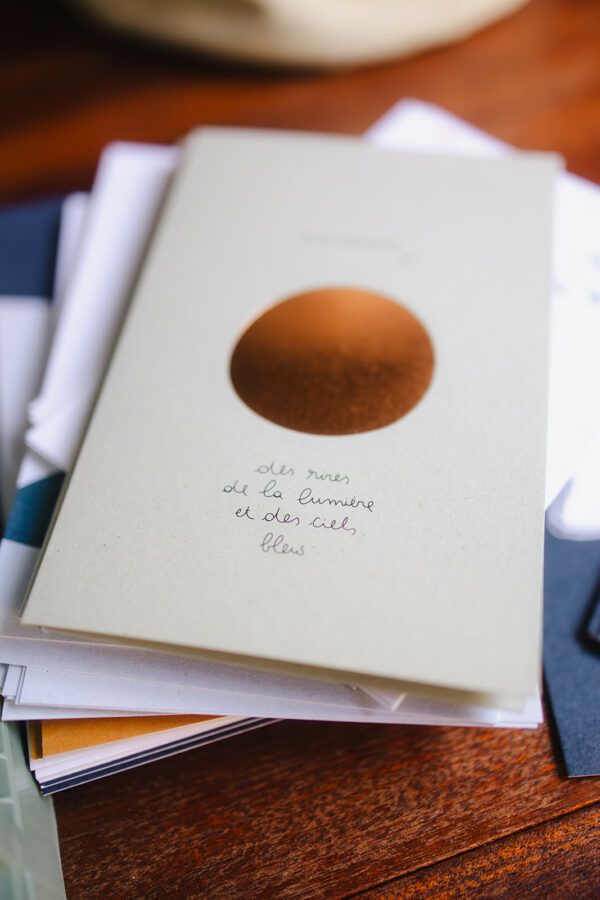 des rires
de la lumière
et des ciels
bleus